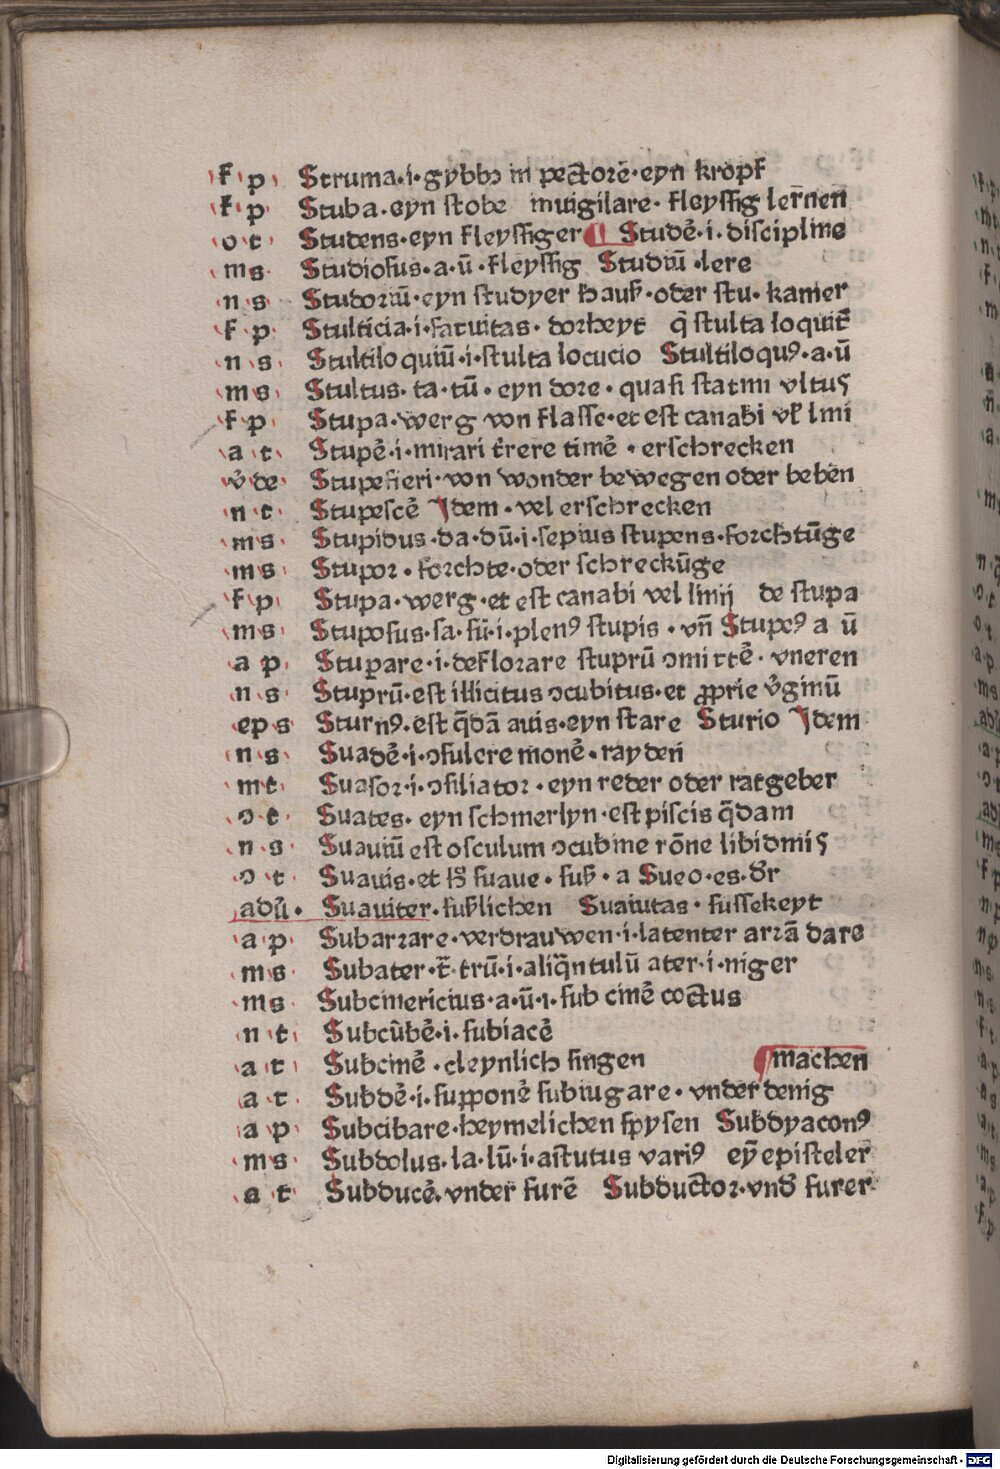 f p Struma·i·gybbꝫ in pectorē·eyn kropf
f p Stuba·eyn stobe inuigilare·fleyssig lerñen̄
o t Studens·eyn fleyssiger ¶ Studē·i·discipline
m s Studiosus·a·ū·fleyssig Studiū·lere
n s Studoriū·eyn studyer hauß·oder stu·kamer
f p Stulticia·i·fatuitas·dorheyt q̄ stulta loquit̄
n s Stultiloquiū·i·stulta locucio Stultiloquꝰ·a·ū
m s Stultus·ta·tū·eyn dore·quasi statini vltus
f p Stupa·werg von flasse·et est canabi vł lini
a t Stupē·i·mirari t̄rere timē·erschrecken
v̄ de Stupefieri·von wonder bewegen oder beben
n t Stupescē Idem·vel erschrecken
m s Stupidus·da·dū·i·sepius stupens·forchtūge
m s Stupor·forchte·oder schreckūge
f p Stupa·werg·et est canabi vel linij de stupa
m s Stuposus·sa·sū·i·plenꝰ stupis·vn̄ Stupeꝰ a ū
a p Stuprare·i·deflorare stuprū ↄmittē·vneren
n s Stuprū·est illicitus ↄcubitus·et ꝓprie v̄ginū
ep s Sturnꝰ·est q̄dā auis·eyn stare Sturio Idem
n s Suadē·i·ↄsulere monē·rayden̄
m t Suasor·i·ↄsiliator·eyn reder oder ratgeber
ↄ t Suates·eyn schmerlyn·est piscis q̄dam
n s Suauiū est osculum ↄcubine rōne libidinis
ↄ t Suauis·et hꝰ suaue·suß·a Sueo·es·dr̄
adū· Suauiter·sußlichen Suauitas·sussekeyt
a p Subarrare·verdrauwen·i·latenter arrā dare
m s Subater·t̄·trū·i·aliq̄ntulū ater·i·niger
m s Subcinericius·a·ū·i·sub cinē coctus
n t Subcūbē·i·subiacē
a t Subcinē·cleynlich singen ¶ machen
a t Subdē·i·supponē subiugare·vnderdenig
a p Subcibare·heymelichen spysen Subdyaconꝰ
m s Subdolus·la·lū·i·astutus variꝰ eyn̄ episteler
a t Subducē·vnder furē Subductor·vnd̄ furer
Digitalisierung gefördert durch die Deutsche Forschungsgemeinschaft - DFG